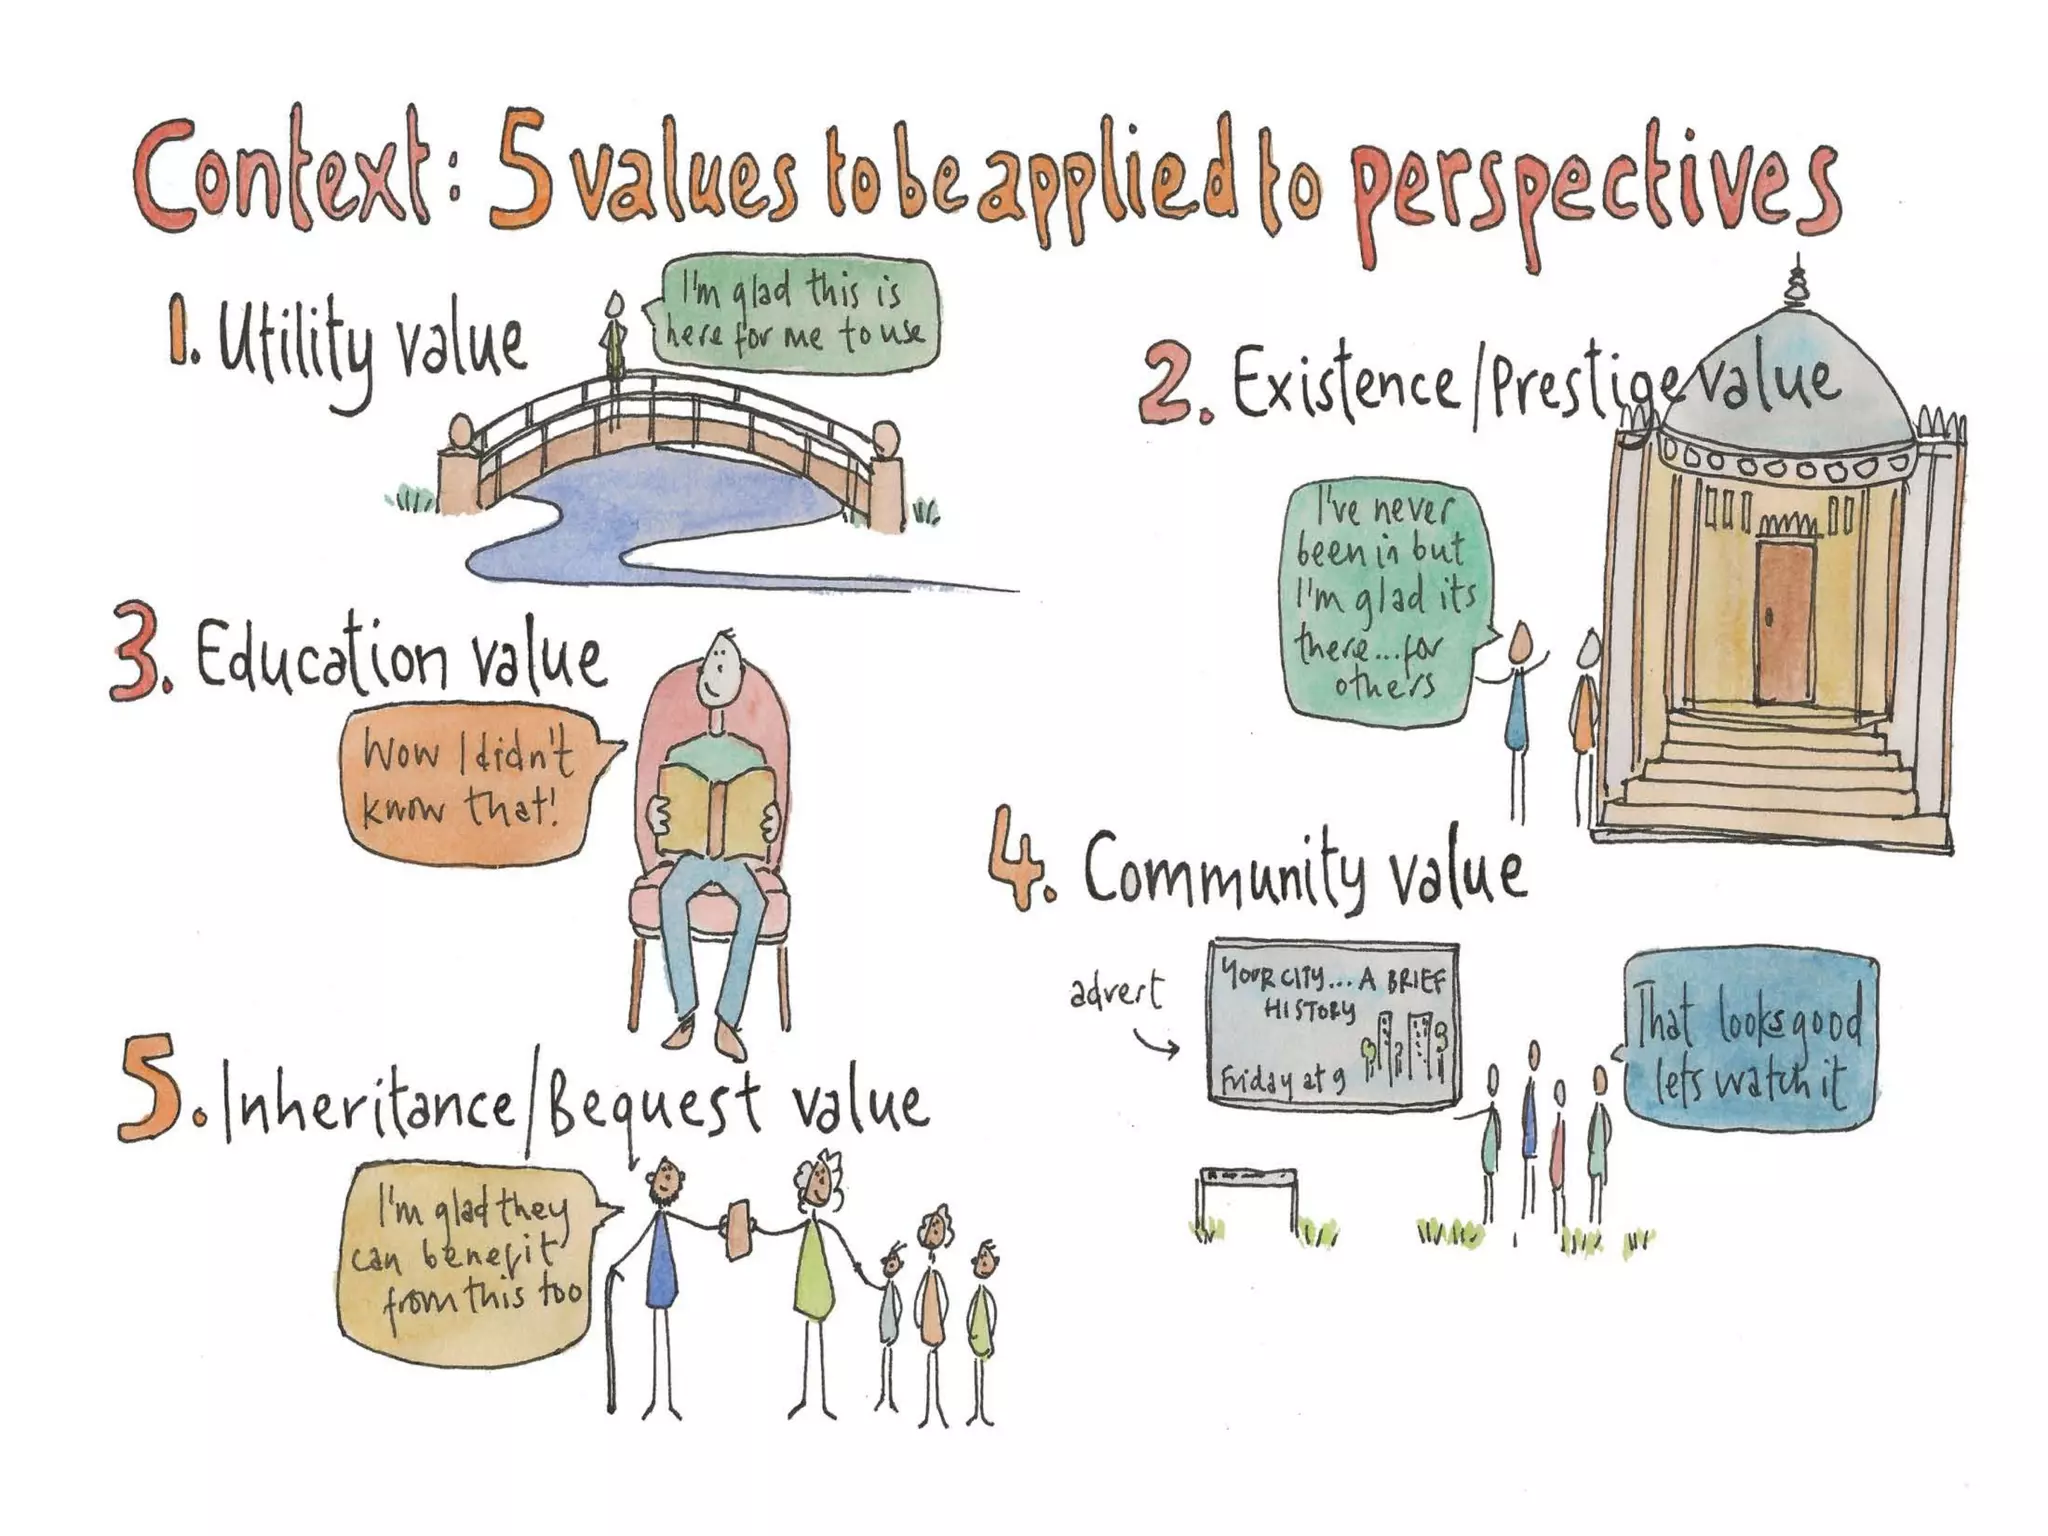 Context: 5 values to be applied to perspectives
1. Utility value
I'm glad this is
here for me to use
2. Existence/Prestige value
I've never
been in but
I'm glad its
there...for
others
3. Education value
Wow I didn't
know that!
4. Community value
advert
YOUR CITY... A BRIEF
HISTORY
Friday at 9
That looks good
lets watch it
5. Inheritance/Bequest value
I'm glad they
can benefit
from this too